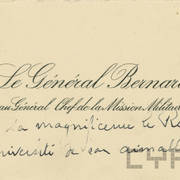 Le Général Bernard
au Général Chef de la Mission Militaire
La magnificence le Re
niversité de son aimabl